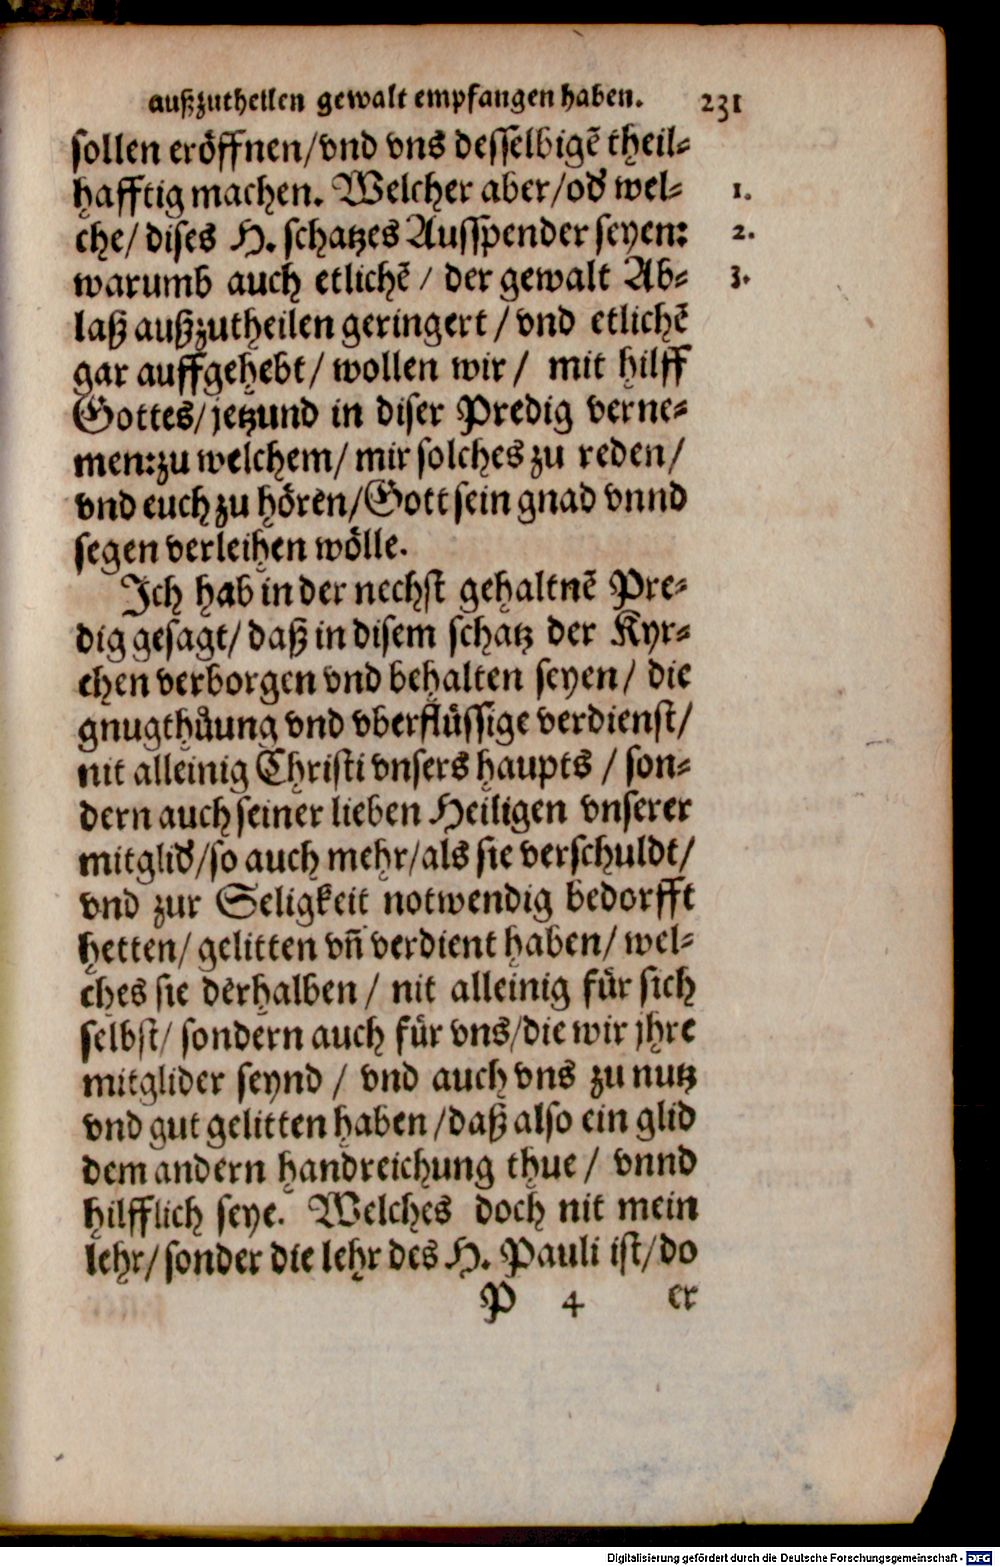 außzutheilen gewalt empfangen haben. 231
sollen eröffnen/vnd vns desselbigẽ theil-
hafftig machen. Welcher aber/od' wel- 1.
che/ dises H. schatzes Ausspender seyen: 2.
warumb auch etlichẽ / der gewalt Ab- 3.
laß außzutheilen geringert / vnd etlichẽ
gar auffgehebt/ wollen wir / mit hilff
Gottes/jetzund in diser Predig verne-
men:zu welchem/ mir solches zu reden/
vnd euch zu hören/Gott sein gnad vnnd
segen verleihen wölle.
Ich hab in der nechst gehaltnẽ Pre-
dig gesagt/ daß in disem schatz der Kyr-
chen verborgen vnd behalten seyen/ die
gnugthůung vnd vberflüssige verdienst/
nit alleinig Christi vnsers haupts / son-
dern auch seiner lieben Heiligen vnserer
mitglid'/so auch mehr/als sie verschuldt/
vnd zur Seligkeit notwendig bedorfft
hetten/ gelitten vñ verdient haben/ wel-
ches sie derhalben / nit alleinig für sich
selbst/ sondern auch für vns/die wir jhre
mitglider seynd / vnd auch vns zu nutz
vnd gut gelitten haben /daß also ein glid
dem andern handreichung thue / vnnd
hilfflich seye. Welches doch nit mein
lehr/sonder die lehr des H. Pauli ist/do
P 4 er
Digitalisierung gefördert durch die Deutsche Forschungsgemeinschaft - DFG